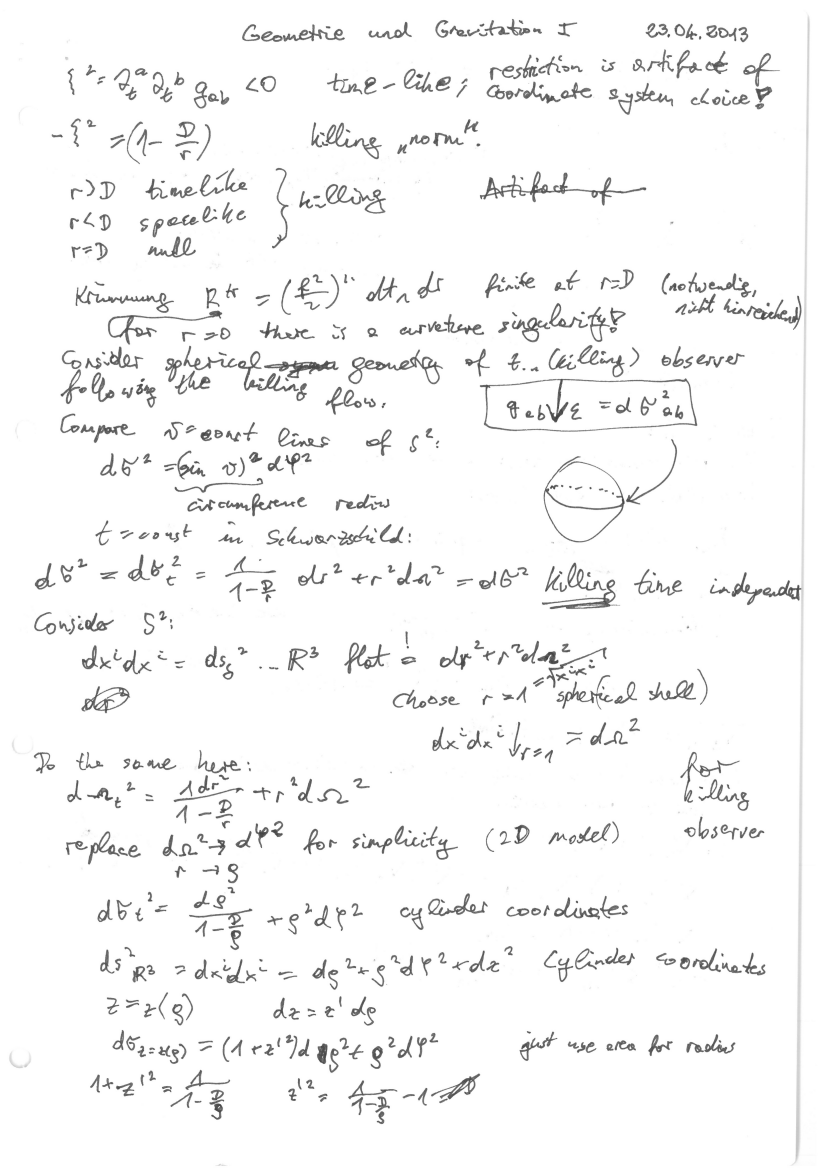 Geometrie und Gravitation I 23.04.2013
ξ² = ∂ₜᵃ ∂ₜᵇ g_ab < 0 time-like; restriction is artifact of
coordinate system choice!
-ξ² = (1 - D/r) killing „norm“.
r>D timelike
r<D spacelike } killing Artifact of
r=D null
Krümmung R^tr = (f²/2)'' dt ∧ dr finite at r=D (notwendig,
nicht hinreichend)
(for r=0 there is a curvature singularity!
Consider spherical geometry of t.. (killing) observer
following the killing flow.
g_ab↓Σ = dσ²_ab
Compare ϑ=const lines of S²:
dσ² = (sin ϑ)² dφ²
circumference radius
t=const in Schwarzschild:
dσ² = dσₜ² = 1/(1 - D/r) dr² + r²dΩ² = dσ² killing time independet
Consider S²:
dxⁱdxⁱ = ds_δ² ... R³ flat ! dr² + r²dΩ²
dr²
choose r=1 =√xⁱxⁱ spherical shell)
dxⁱdxⁱ↓r=1 = dΩ²
Do the same here:
dσₜ² = 1dr²/(1 - D/r) + r²dΩ²
for
killing
observer
replace dΩ² → dφ² for simplicity (2D model)
r → ρ
dσₜ² = dρ²/(1 - D/ρ) + ρ²dφ² cylinder coordinates
ds²_R³ = dxⁱdxⁱ = dρ² + ρ²dφ² + dz² Cylinder coordinates
z = z(ρ) dz = z' dρ
dσ_z=z(ρ) = (1+z'²)dρ² + ρ²dφ² just use area for radius
1+z'² = 1/(1 - D/ρ) z'² = 1/(1 - D/ρ) - 1